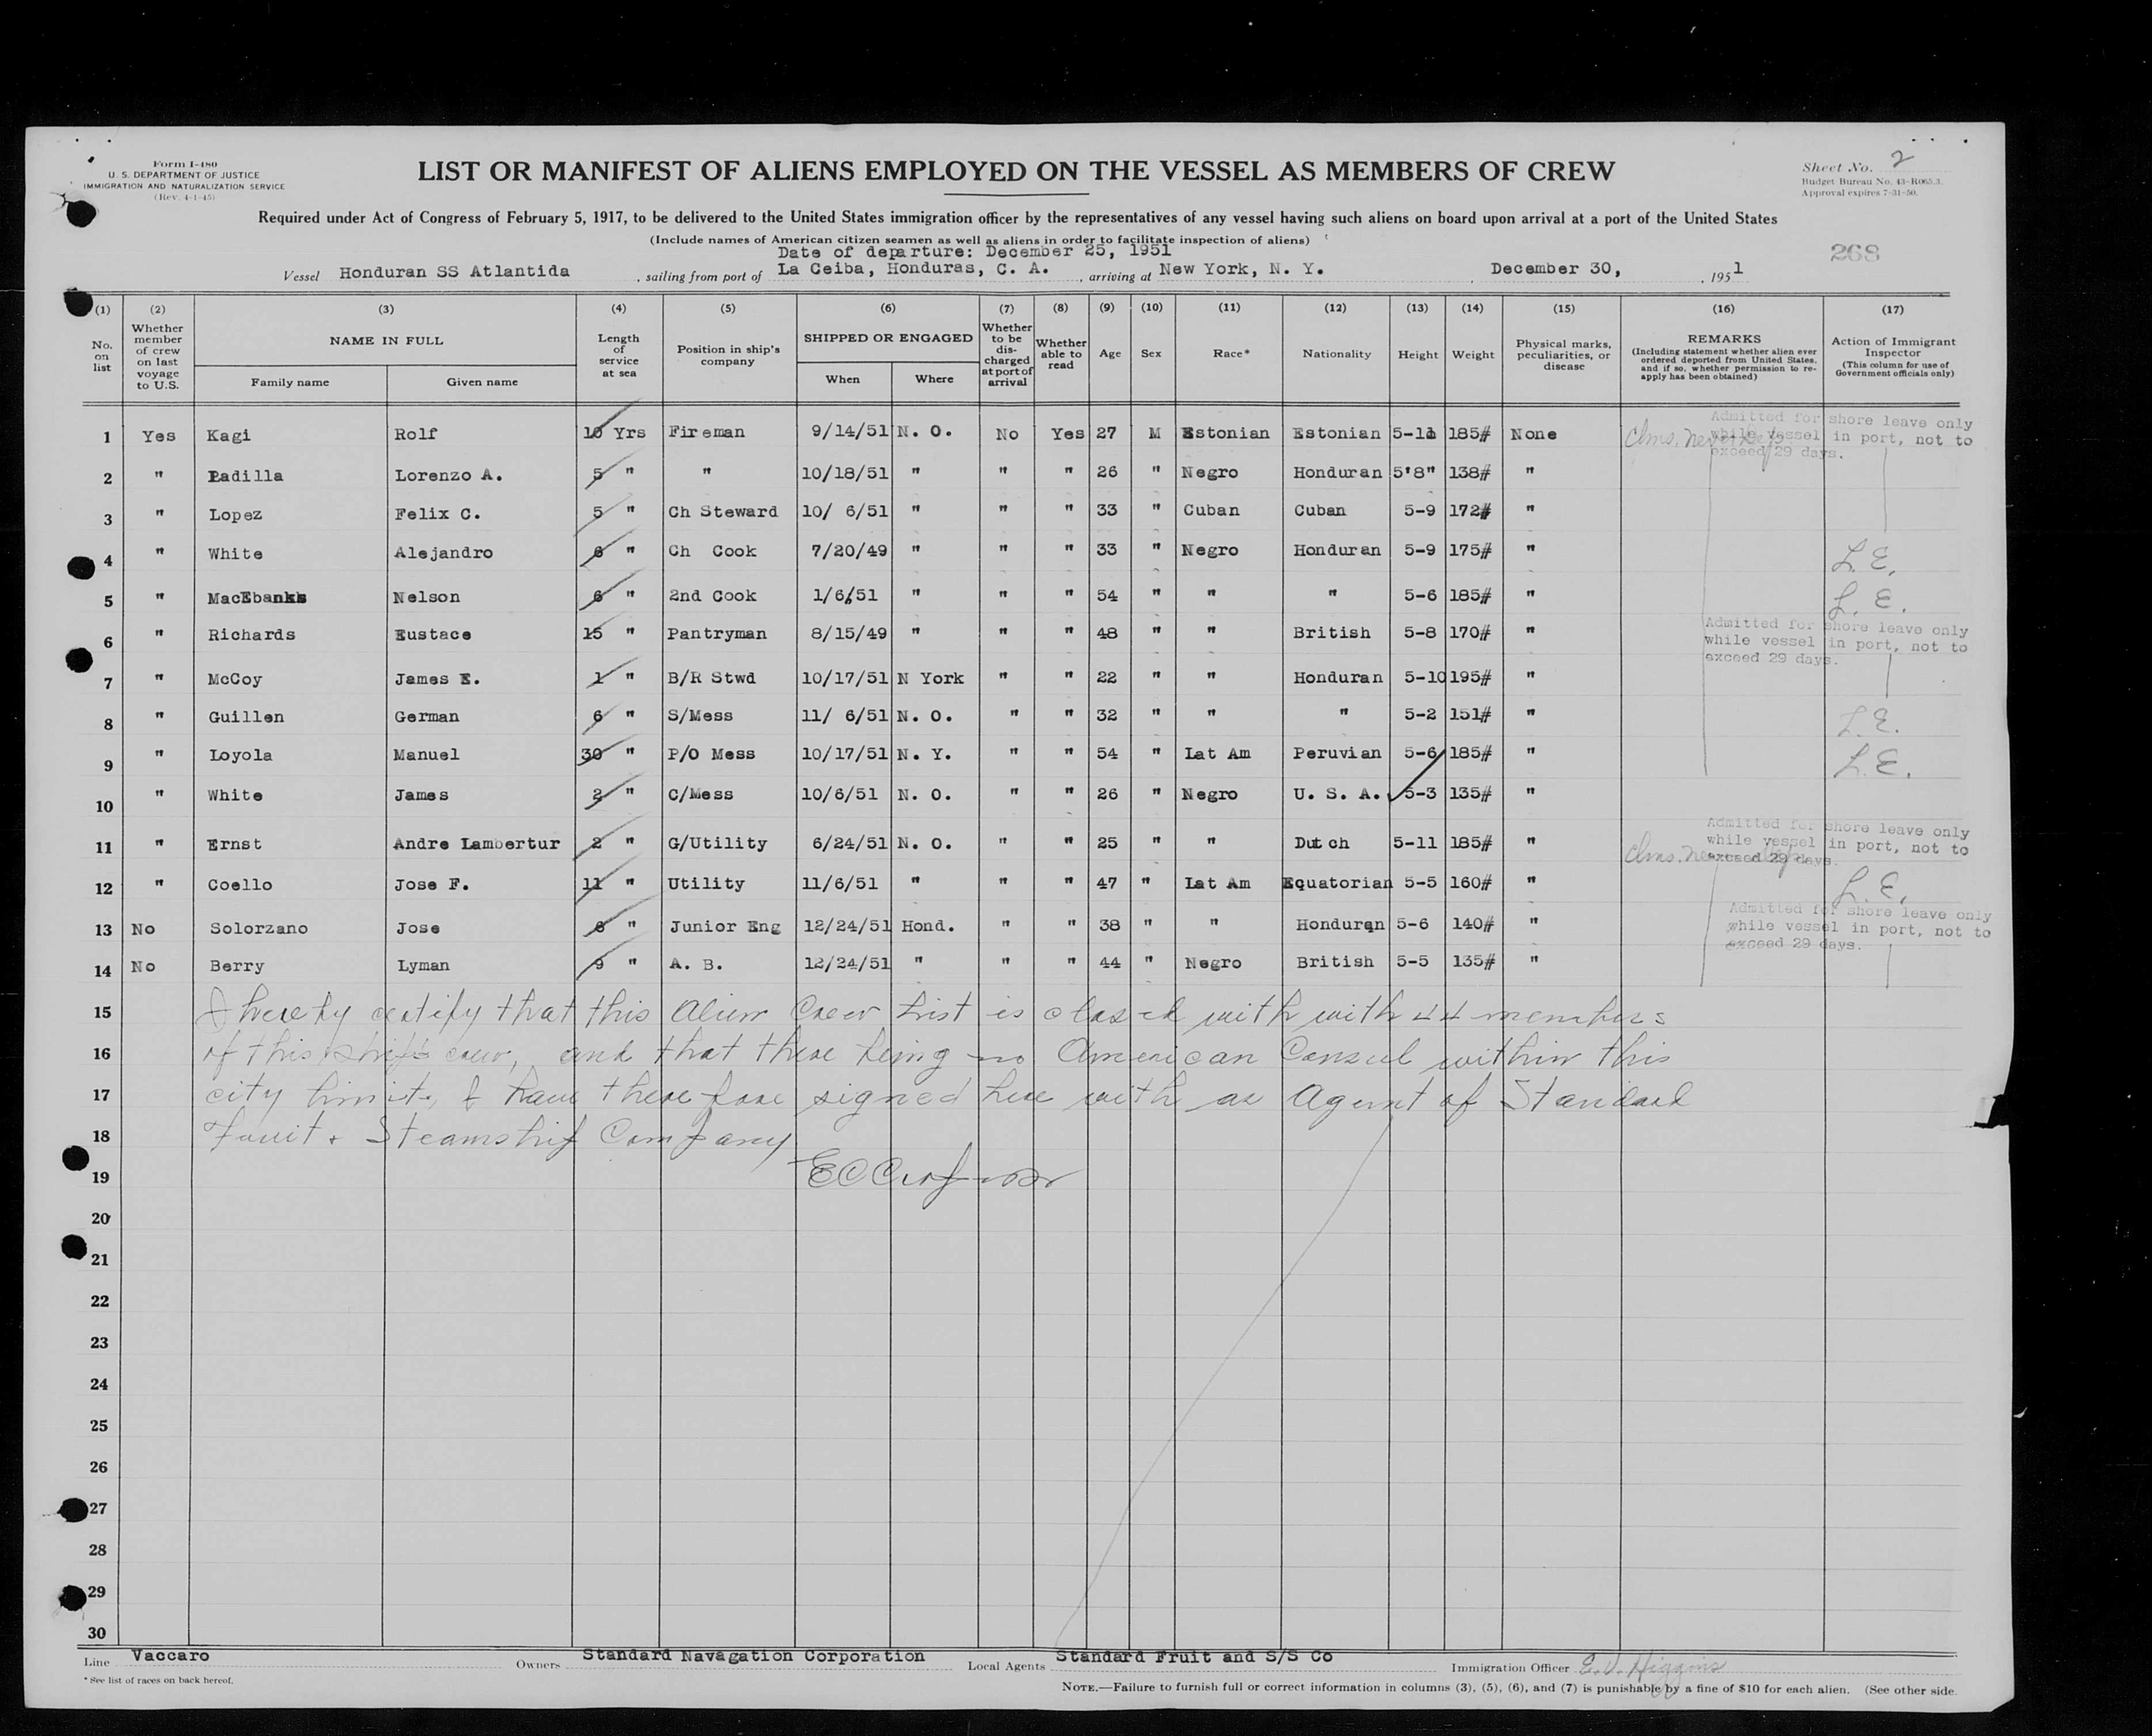 Form I-480
U. S. DEPARTMENT OF JUSTICE
IMMIGRATION AND NATURALIZATION SERVICE
(Rev. 4-1-45)
LIST OR MANIFEST OF ALIENS EMPLOYED ON THE VESSEL AS MEMBERS OF CREW
Sheet No. 2
Budget Bureau No. 43-R065.3.
Approval expires 7-31-50.
Required under Act of Congress of February 5, 1917, to be delivered to the United States immigration officer by the representatives of any vessel having such aliens on board upon arrival at a port of the United States
(Include names of American citizen seamen as well as aliens in order to facilitate inspection of aliens)
Date of departure: December 25, 1951
268
Vessel Honduran SS Atlantida, sailing from port of La Ceiba, Honduras, C. A., arriving at New York, N. Y., December 30, 1951
(1) No. on list
(2) Whether member of crew on last voyage to U.S.
(3) NAME IN FULL Family name Given name
(4) Length of service at sea
(5) Position in ship's company
(6) SHIPPED OR ENGAGED When Where
(7) Whether to be discharged at port of arrival
(8) Whether able to read
(9) Age
(10) Sex
(11) Race*
(12) Nationality
(13) Height
(14) Weight
(15) Physical marks, peculiarities, or disease
(16) REMARKS (Including statement whether alien ever ordered deported from United States, and if so, whether permission to reapply has been obtained)
(17) Action of Immigrant Inspector (This column for use of Government officials only)
1 Yes Kagi Rolf 10 Yrs Fireman 9/14/51 N. O. No Yes 27 M Estonian Estonian 5-11 185# None Clms. never Admitted for shore leave only while vessel in port, not to exceed 29 days.
2 " Padilla Lorenzo A. 5 " " 10/18/51 " " " 26 " Negro Honduran 5'8" 138# "
3 " Lopez Felix C. 5 " Ch Steward 10/ 6/51 " " " 33 " Cuban Cuban 5-9 172# "
4 " White Alejandro 6 " Ch Cook 7/20/49 " " " 33 " Negro Honduran 5-9 175# " L. E.
5 " MacEbanks Nelson 6 " 2nd Cook 1/6/51 " " " 54 " " " 5-6 185# " L. E.
6 " Richards Eustace 15 " Pantryman 8/15/49 " " " 48 " " British 5-8 170# " Admitted for shore leave only while vessel in port, not to exceed 29 days.
7 " McCoy James E. 1 " B/R Stwd 10/17/51 N York " " 22 " " Honduran 5-10 195# "
8 " Guillen German 6 " S/Mess 11/ 6/51 N. O. " " 32 " " " 5-2 151# " L. E.
9 " Loyola Manuel 30 " P/O Mess 10/17/51 N. Y. " " 54 " Lat Am Peruvian 5-6 185# " L. E.
10 " White James 2 " C/Mess 10/6/51 N. O. " " 26 " Negro U. S. A. 5-3 135# "
11 " Ernst Andre Lambertur 2 " G/Utility 6/24/51 N. O. " " 25 " " Dutch 5-11 185# " Clms. Admitted for shore leave only while vessel in port, not to exceed 29 days.
12 " Coello Jose F. 11 " Utility 11/6/51 " " " 47 " Lat Am Equatorian 5-5 160# " L. E.
13 No Solorzano Jose 6 " Junior Eng 12/24/51 Hond. " " 38 " " Honduran 5-6 140# " Admitted for shore leave only while vessel in port, not to exceed 29 days.
14 No Berry Lyman 9 " A. B. 12/24/51 " " " 44 " Negro British 5-5 135# "
15 I hereby certify that this Alien Crew List is closed with with 44 members
16 of this ship's crew, and that there being no American Consul within this
17 city limits, I have therefore signed here with as Agent of Standard
18 Fruit & Steamship Company
19
20
21
22
23
24
25
26
27
28
29
30
Line Vaccaro Owners Standard Navagation Corporation Local Agents Standard Fruit and S/S Co Immigration Officer E. V. Higgins
* See list of races on back hereof.
NOTE.—Failure to furnish full or correct information in columns (3), (5), (6), and (7) is punishable by a fine of $10 for each alien. (See other side.